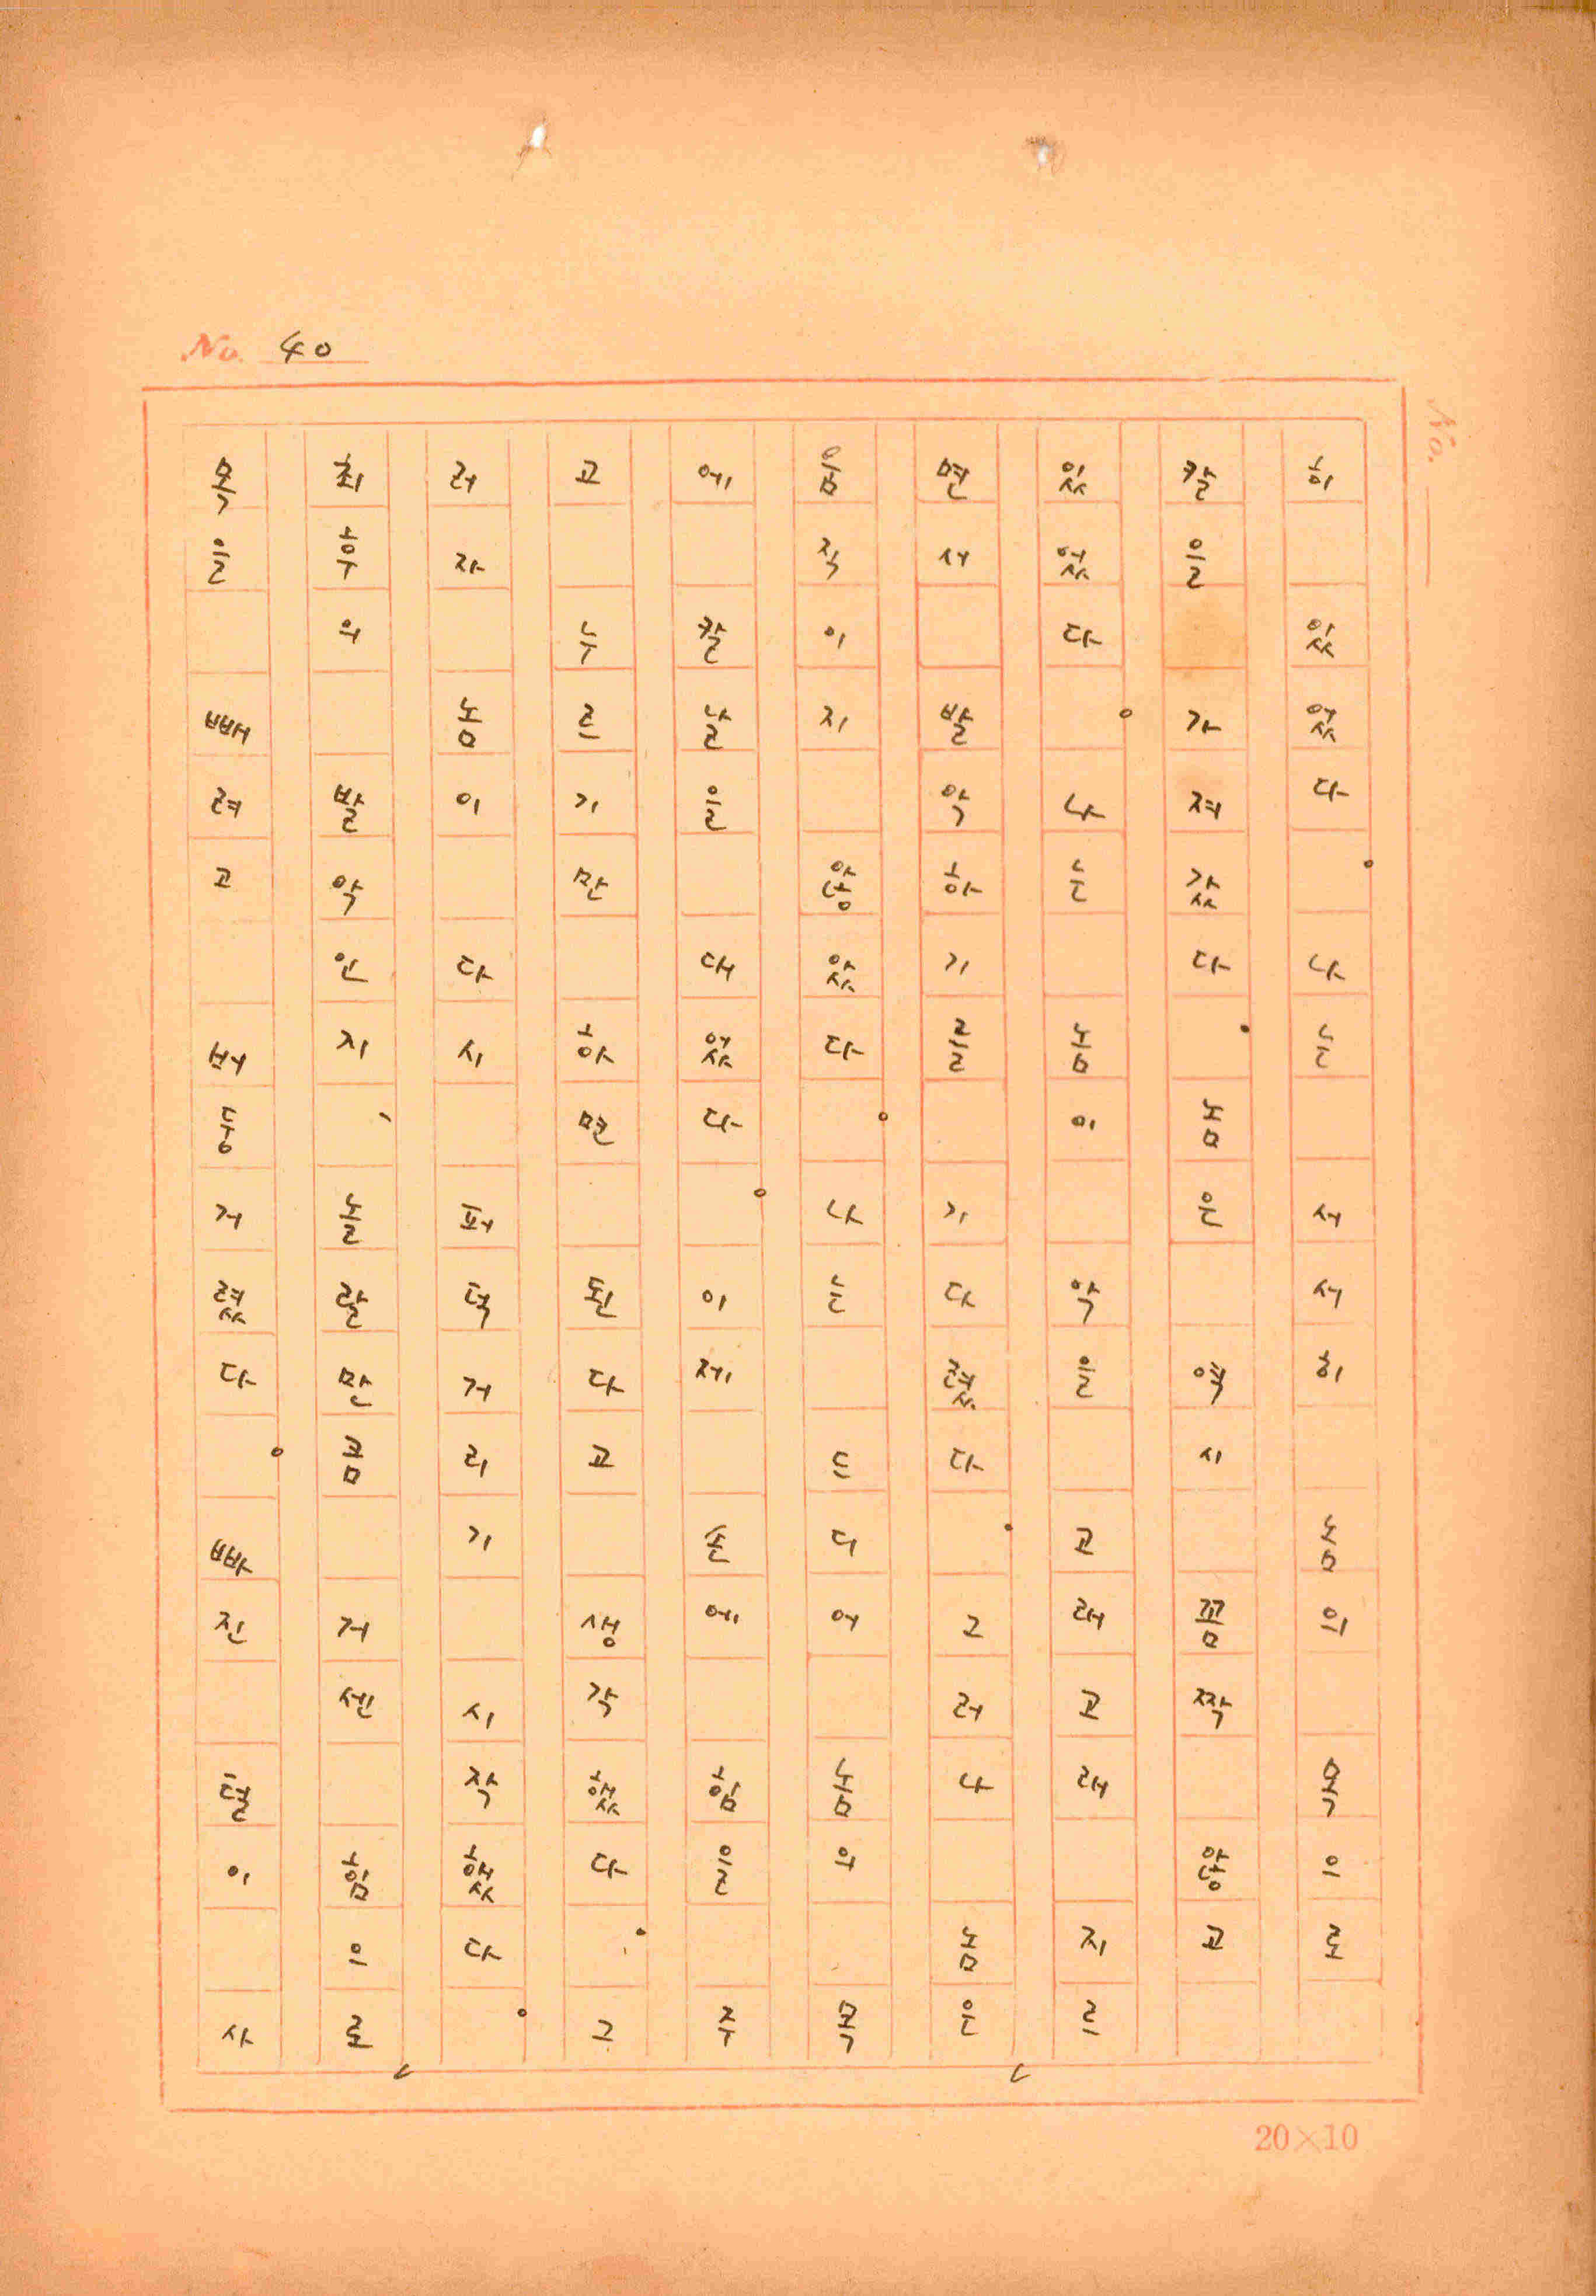 No. 40
No.
히 있었다. 나는 서서히 놈의 목으로
칼을 가져갔다. 놈은 역시 꼼짝 않고
있었다. 나는 놈이 악을 고래고래 지르
면서 발악하기를 기다렸다. 그러나 놈은
움직이지 않았다. 나는 드디어 놈의 목
에 칼날을 대었다. 이제 손에 힘을 주
고 누르기만 하면 된다고 생각했다. 그
러자 놈이 다시 퍼덕거리기 시작했다.
최후의 발악인지, 놀랄만큼 거센 힘으로
목을 빼려고 버둥거렸다. 빠진 털이 사
20×10